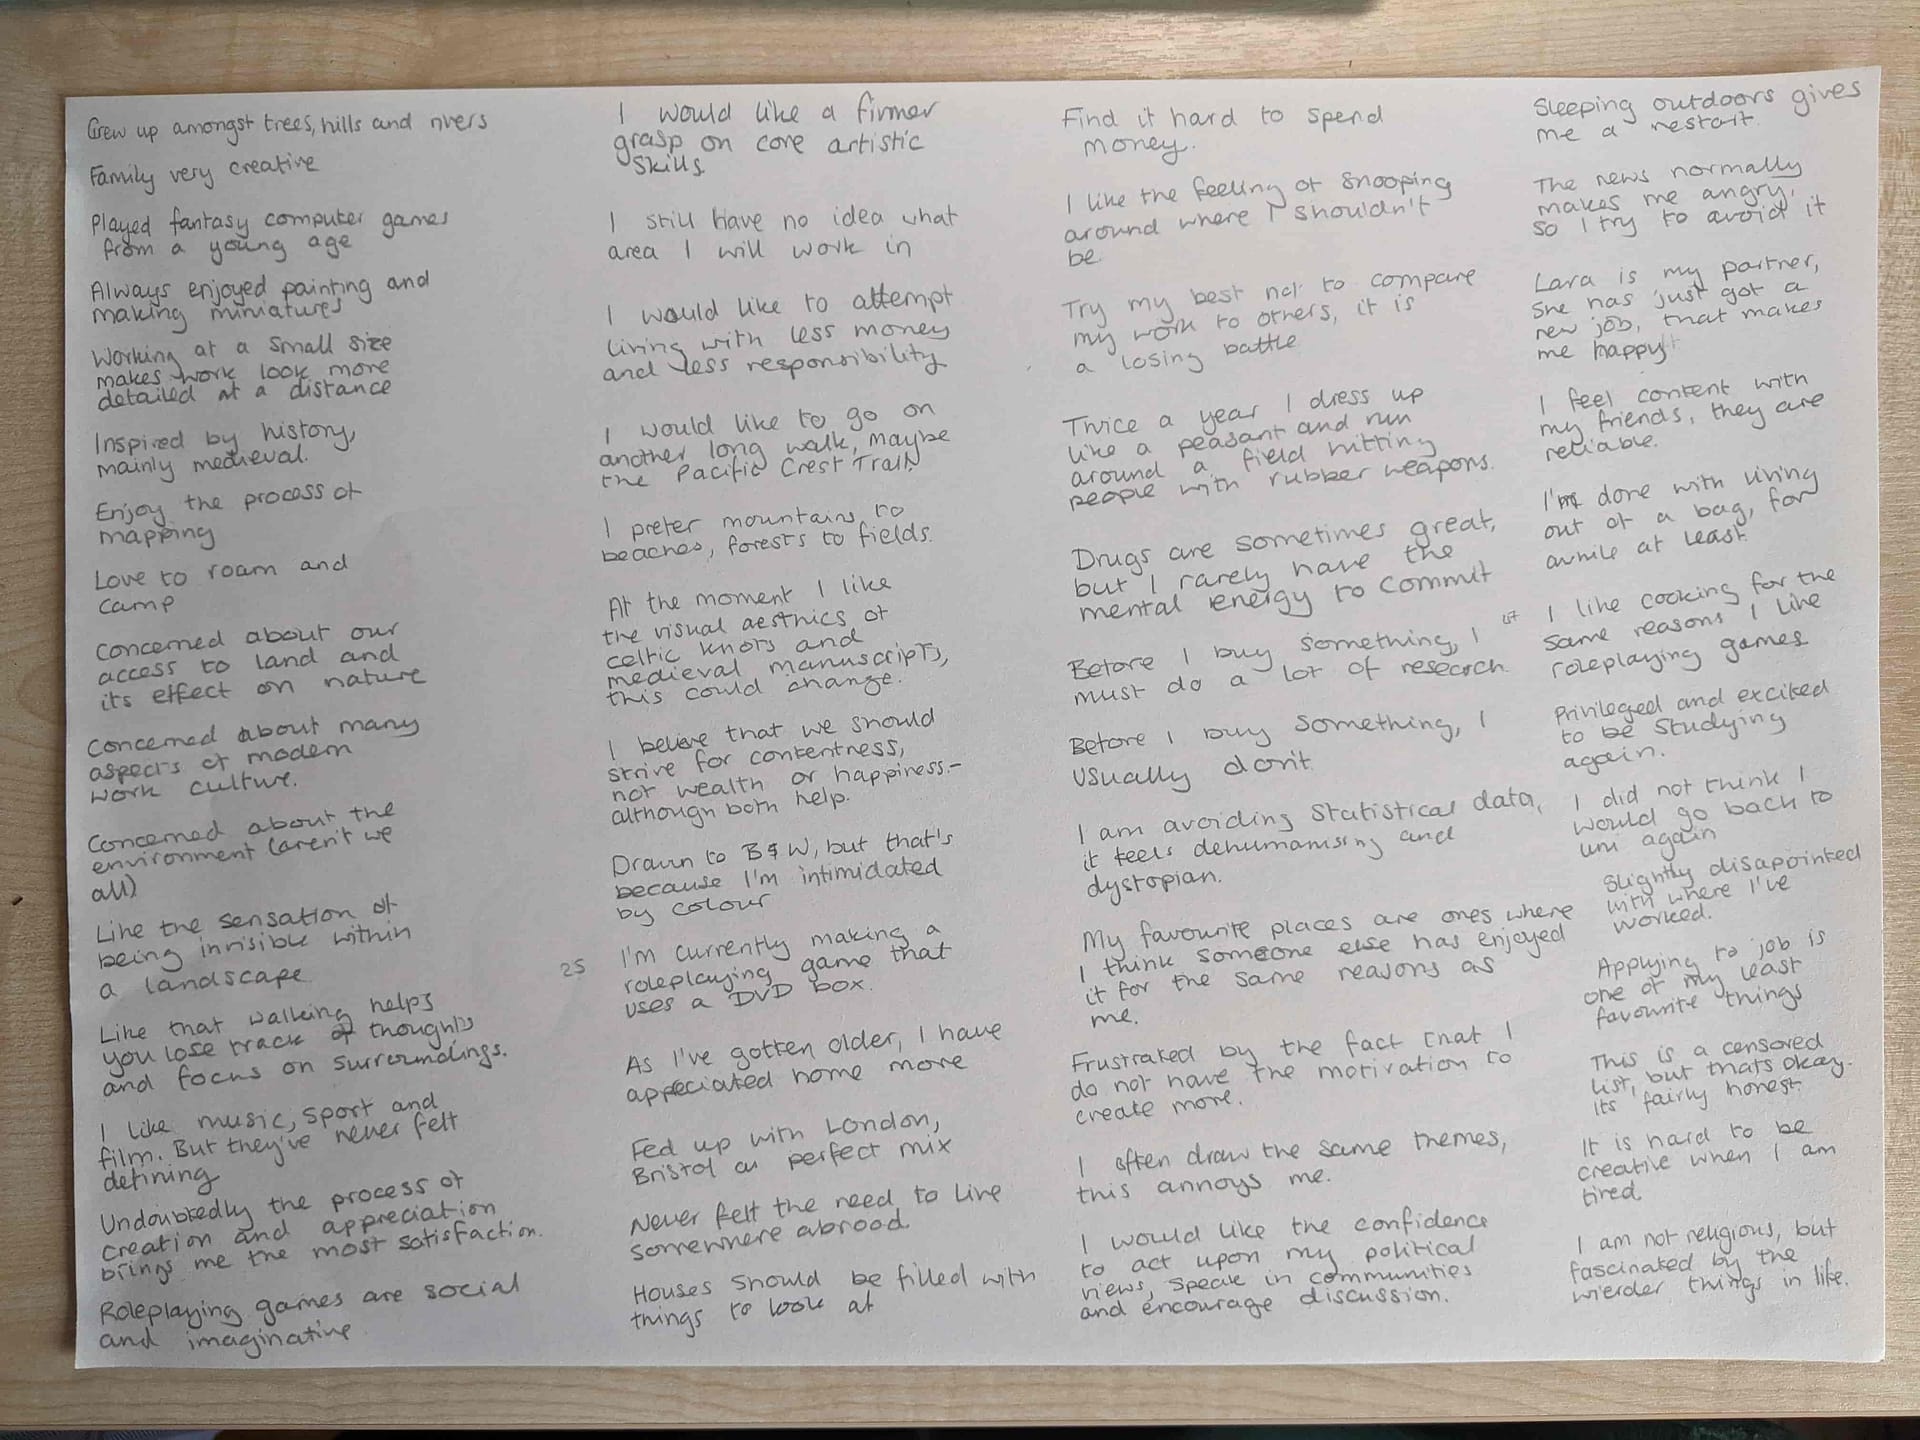 Grew up amongst trees, hills and rivers
Family very creative
Played fantasy computer games
from a young age
Always enjoyed painting and
making miniatures
Working at a small size
makes work look more
detailed at a distance
Inspired by history,
mainly medieval.
Enjoy the process of
mapping
Love to roam and
camp
Concerned about our
access to land and
its effect on nature
Concerned about many
aspects of modern
work culture.
Concerned about the
environment (aren't we
all)
Like the sensation of
being invisible within
a landscape
Like that walking helps
you lose track of thoughts
and focus on surroundings.
I like music, sport and
film. But they've never felt
defining
Undoubtedly the process of
creation and appreciation
brings me the most satisfaction.
Roleplaying games are social
and imaginative
I would like a firmer
grasp on core artistic
skills
I still have no idea what
area I will work in
I would like to attempt
living with less money
and less responsibility
I would like to go on
another long walk, maybe
the Pacific Crest Trail
I prefer mountains to
beaches, forests to fields.
At the moment I like
the visual aesthics of
celtic knots and
medieval manuscripts,
this could change.
I believe that we should
strive for contentness,
not wealth or happiness -
although both help.
Drawn to B&W, but that's
because I'm intimidated
by colour
25
I'm currently making a
roleplaying game that
uses a DVD box.
As I've gotten older, I have
appreciated home more
Fed up with London,
Bristol a perfect mix
Never felt the need to live
somewhere abroad
Houses should be filled with
things to look at
Find it hard to spend
money.
I like the feeling of snooping
around where I shouldn't
be.
Try my best not to compare
my work to others, it is
a losing battle
Twice a year I dress up
like a peasant and run
around a field hitting
people with rubber weapons.
Drugs are sometimes great,
but I rarely have the
mental energy to commit
Before I buy something, I
must do a lot of research
Before I buy something, I
usually don't.
I am avoiding statistical data,
it feels dehumanising and
dystopian.
My favourite places are ones where
I think someone else has enjoyed
it for the same reasons as
me.
Frustraked by the fact that I
do not have the motivation to
create more.
I often draw the same themes,
this annoys me.
I would like the confidence
to act upon my political
views, speak in communities
and encourage discussion.
Sleeping outdoors gives
me a restart.
The news normally
makes me angry,
so I try to avoid it
Lara is my partner,
she has just got a
new job, that makes
me happy!
I feel content with
my friends, they are
reliable.
I'm done with living
out of a bag, for
awhile at least.
I like cooking for the
same reasons I like
roleplaying games
Privileged and excited
to be studying
again.
I did not think I
would go back to
uni again
Slightly disapointed
with where I've
worked.
Applying to job is
one of my least
favourite things
This is a censored
list, but thats okay.
Its fairly honest.
It is hard to be
creative when I am
tired.
I am not religious, but
fascinated by the
wierder things in life.